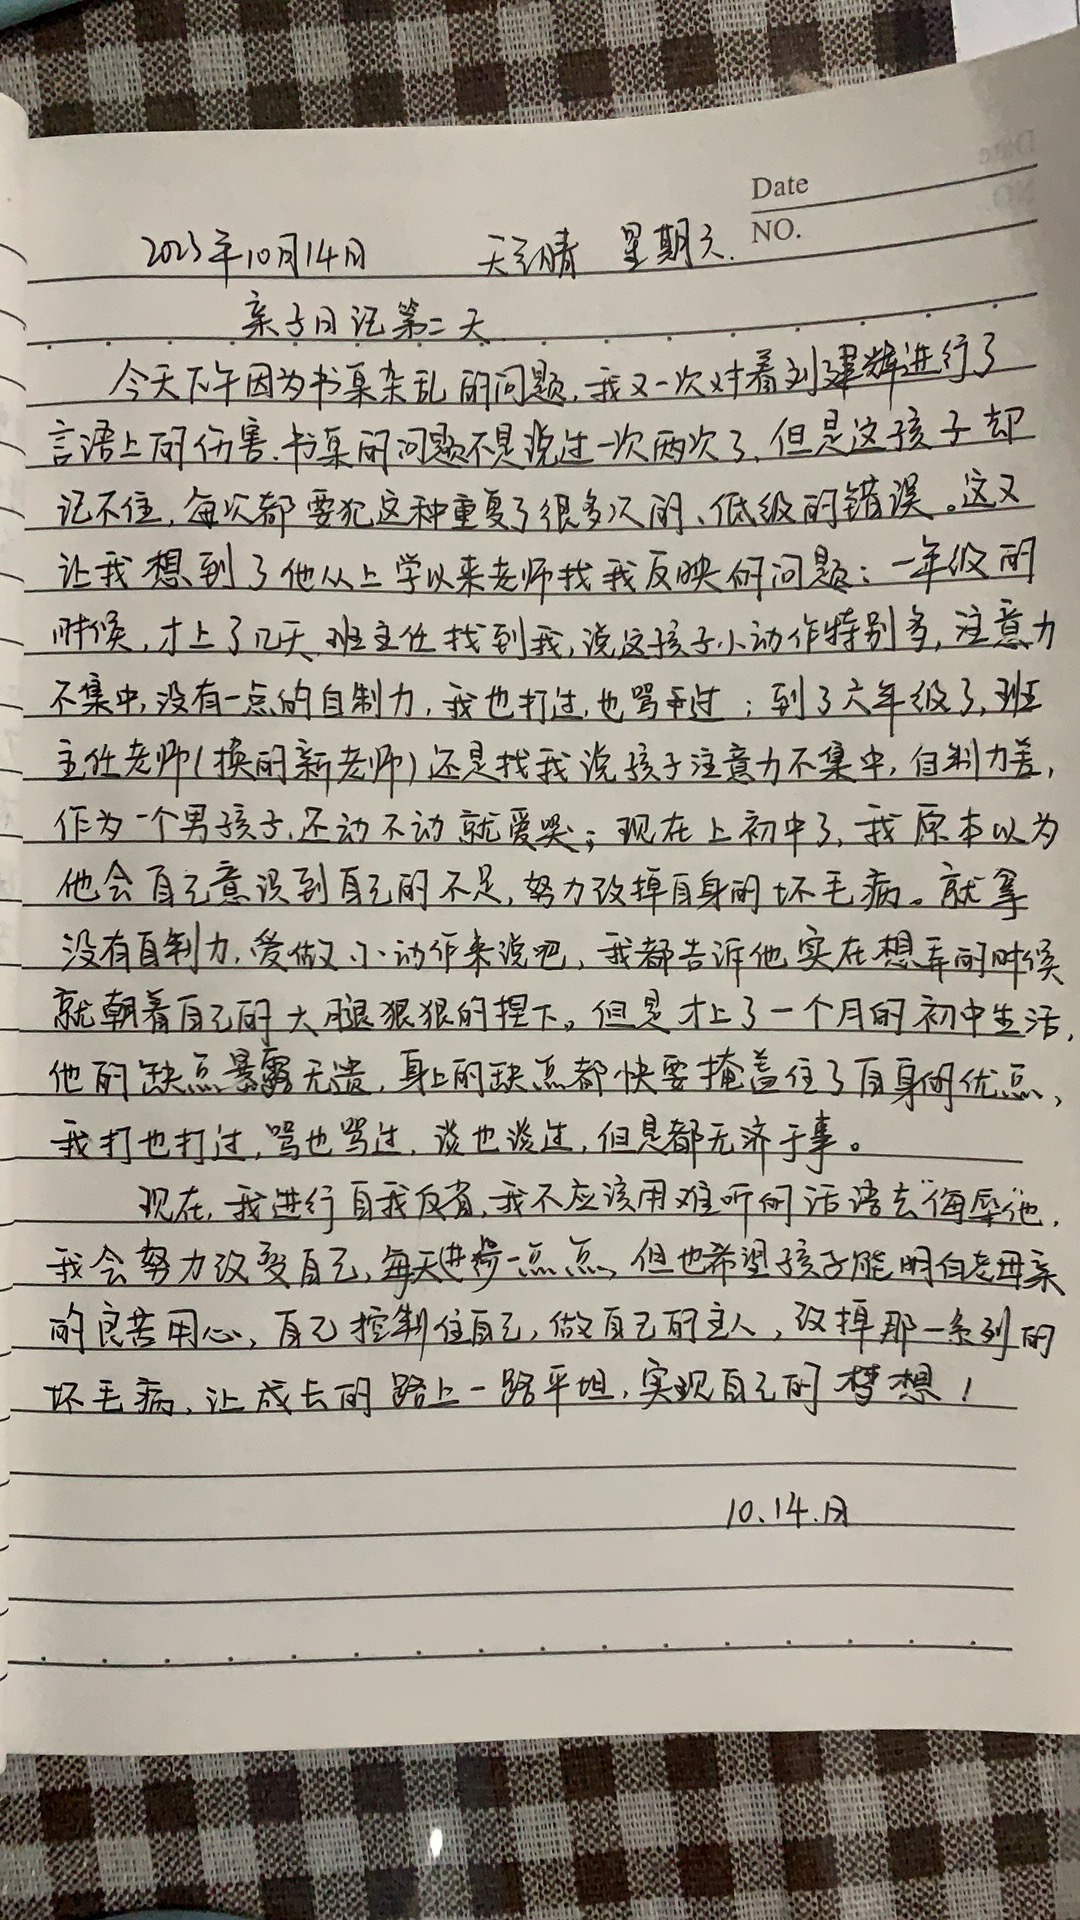 Date
NO.
2023年10月14日 天气晴 星期六.
亲子日记第二天
今天下午因为书桌杂乱的问题,我又一次对着刘建辉进行了
言语上的伤害.书桌的问题不是说过一次两次了,但是这孩子却
记不住,每次都要犯这种重复了很多次的、低级的错误。这又
让我想到了他从上学以来老师找我反映的问题:一年级的
时候,才上了几天,班主任找到我,说这孩子小动作特别多,注意力
不集中,没有一点的自制力,我也打过,也骂过;到了六年级了,班
主任老师(换的新老师)还是找我说孩子注意力不集中,自制力差,
作为一个男孩子,还动不动就爱哭;现在上初中了,我原本以为
他会自己意识到自己的不足,努力改掉自身的坏毛病。就拿
没有自制力,爱做小动作来说吧,我都告诉他实在想弄的时候
就朝着自己的大腿狠狠的捏下。但是才上了一个月的初中生活,
他的缺点暴露无遗,身上的缺点都快要掩盖住了自身的优点,
我打也打过,骂也骂过,谈也谈过,但是都无济于事。
现在,我进行自我反省,我不应该用难听的话语去"侮辱"他,
我会努力改变自己,每天进步一点点,但也希望孩子能明白老母亲
的良苦用心,自己控制住自己,做自己的主人,改掉那一系列的
坏毛病,让成长的路上一路平坦,实现自己的梦想!
10.14.日